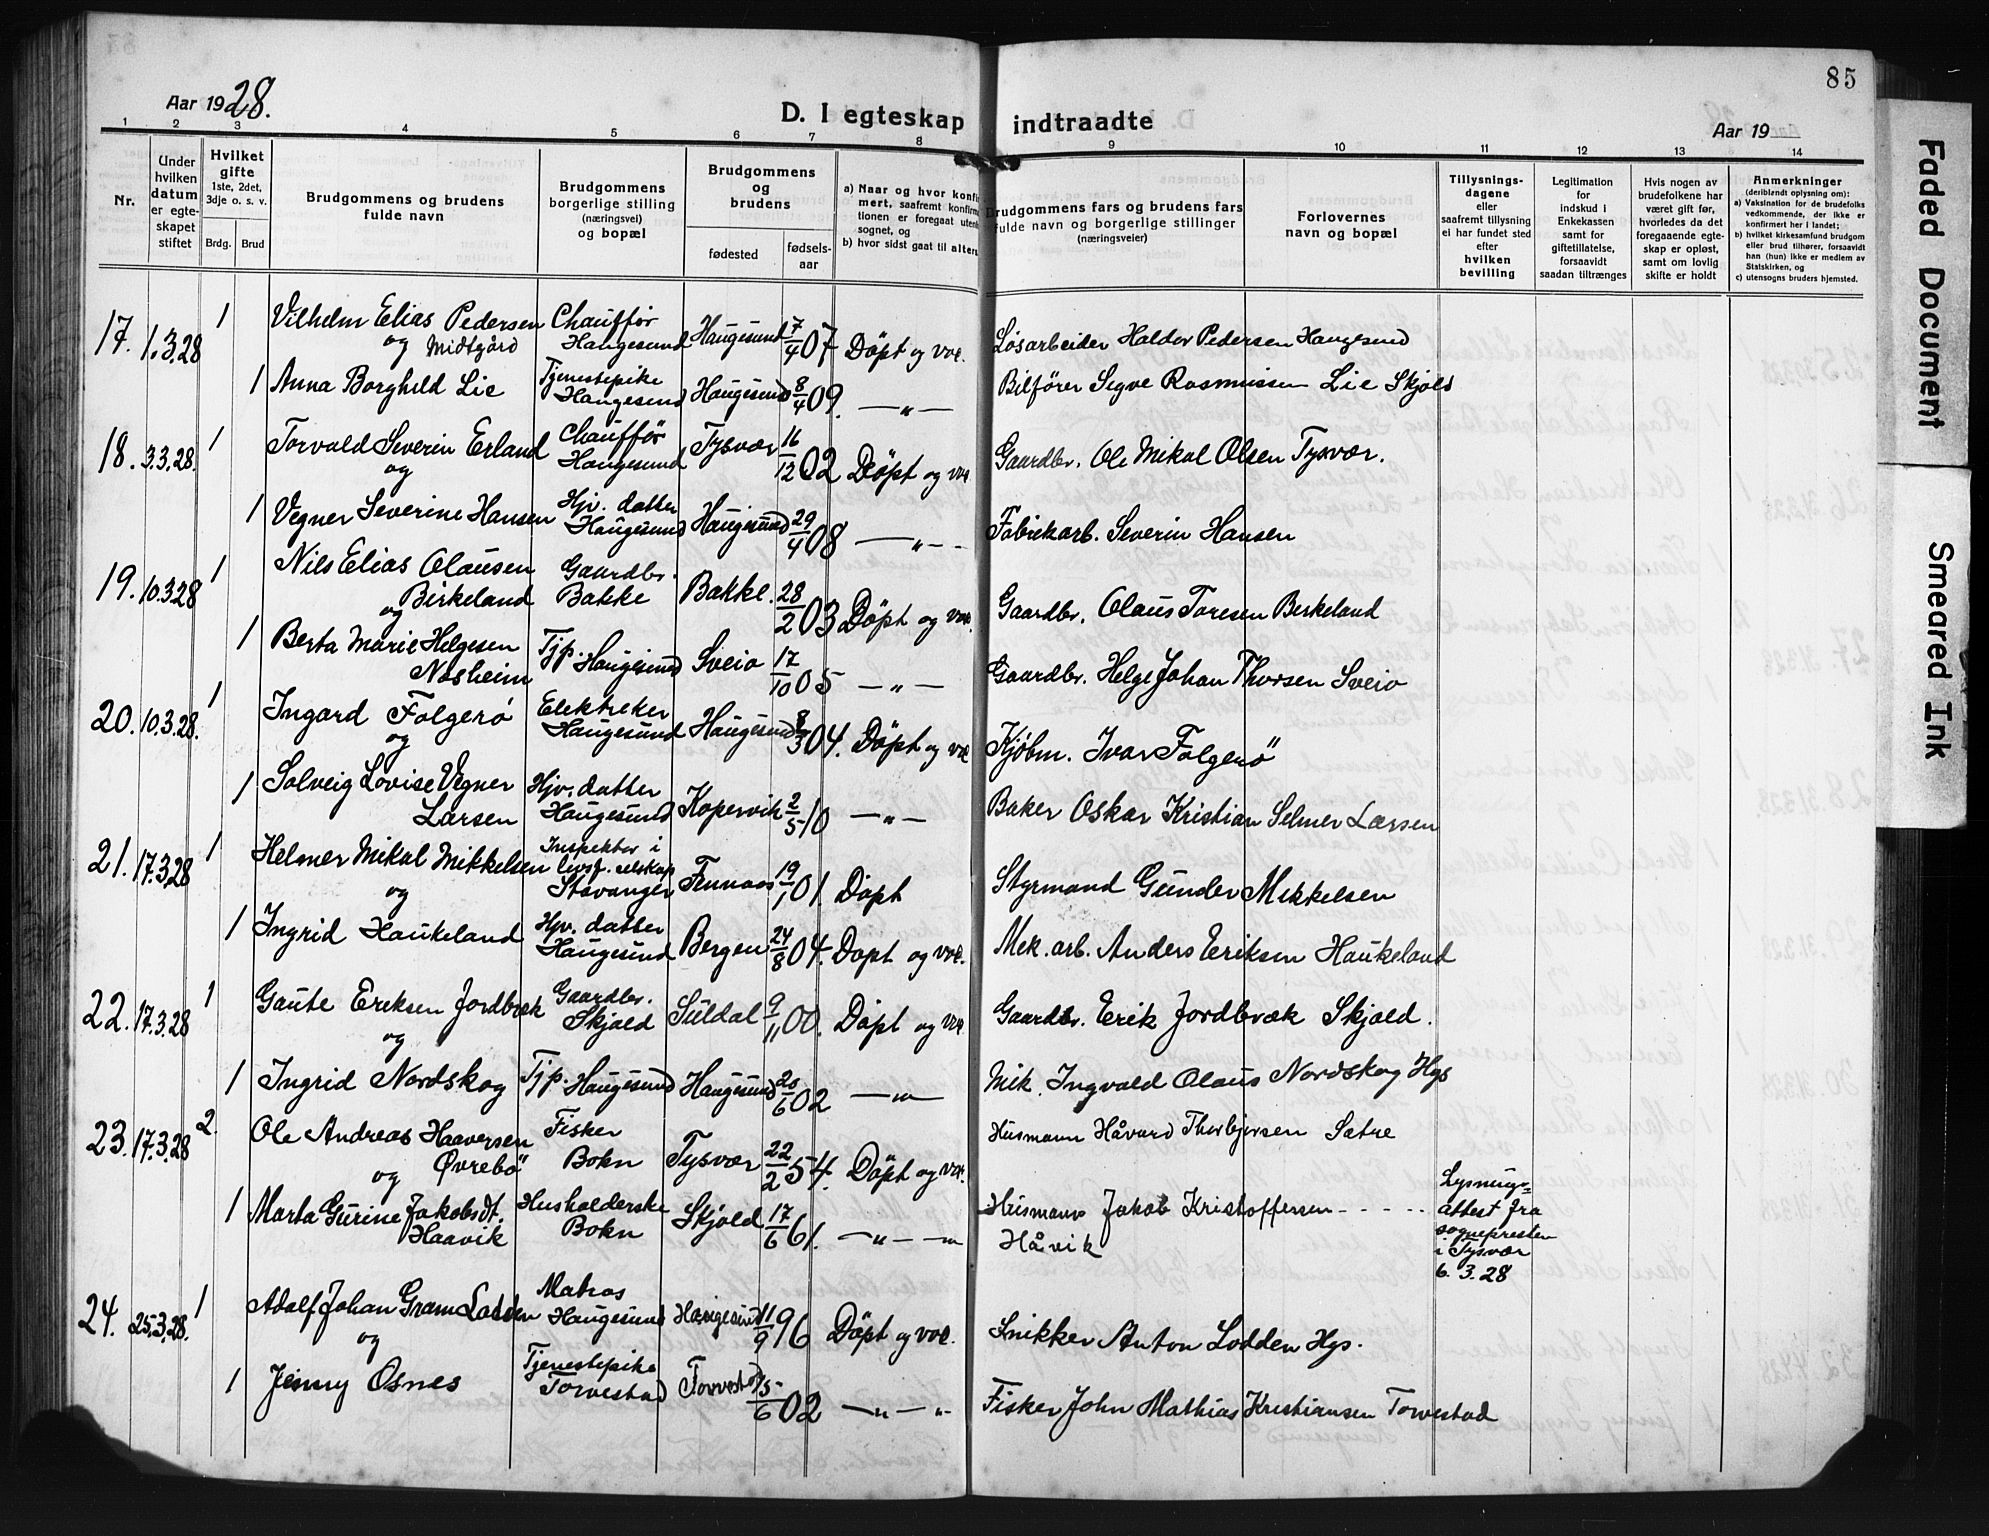 85
Aar 1928.
D. I egteskap indtraadte
Aar 19
1 2 3 4 5 6 7 8 9 10 11 12 13 14
Nr.
Under hvilken datum er egteskapet stiftet
Hvilket gifte 1ste, 2det, 3dje o. s. v.
Brdg. Brud
Brudgommens og brudens fulde navn
Brudgommens borgerlige stilling (næringsvei) og bopæl
Brudgommens og brudens
fødested
fødsels-aar
a) Naar og hvor konfirmert, saafremt konfirmationen er foregaat utenfor sognet, og
b) hvor sidst gaat til alters
Brudgommens fars og brudens fars fulde navn og borgerlige stillinger (næringsveier)
Forlovernes navn og bopæl
Tillysnings-dagene eller saafremt tillysning ei har fundet sted efter hvilken bevilling
Legitimation for indskud i Enkekassen samt for giftetillatelse, forsaavidt saadan tiltrænges
Hvis nogen av brudefolkene har været gift før, hvorledes da det foregaaende egteskap er opløst, samt om lovlig skifte er holdt
Anmerkninger (deriblandt oplysning om):
a) Vaksination for de brudefolks vedkommende, der ikke er konfirmert her i landet;
b) hvilket kirkesamfund brudgom eller brud tilhører, forsaavidt han (hun) ikke er medlem av Statskirken, og
c) utensogns bruders hjemsted.
17. 1.3.28 1 Vilhelm Elias Pedersen Midtgård Chauffør Haugesund Haugesund 7/4 07 Døpt og vac. Løsarbeider Haldor Pedersen Haugesund
og
1 Anna Borghild Lie Tjenestepike Haugesund Haugesund 8/4 09. —"— Bilfører Sigve Rasmussen Lie Skjold
18. 3.3.28. 1 Torvald Severin Erland Chauffør Haugesund Tysvær 16/12 02 Døpt og vac Gaardbr. Ole Mikal Olsen Tysvær.
og
1 Vegner Severine Hansen Hjv. datter Haugesund Haugesund 29/4 08 —"— Fabrikarb. Severin Hansen
19. 10.3.28 1 Nils Elias Olausen Birkeland Gaardbr. Bakke Bakke. 28/2 03 Døpt og vac. Gaardbr. Olaus Toresen Birkeland
og
1 Berta Marie Helgesen Næsheim Tjp. Haugesund Sveio 17/10 05 —"— Gaardbr. Helge Johan Thorsen Sveio
20. 10.3.28. 1 Ingard Folgerø Elektriker Haugesund Haugesund 8/3 04. Døpt og vac Kjøbm. Ivar Folgerø
og
1 Solveig Lovise Vegner Larsen Hjv. datter Haugesund Kopervik 2/5 10 —"— Baker Oskar Kristian Selmer Larsen
21. 17.3.28 1 Helmer Mikal Mikkelsen Inspektør i livsf. selskap Stavanger Finnaas 19/1 01. Døpt Styrmand Gunder Mikkelsen
og
1 Ingrid Haukeland Hjv. datter Haugesund Bergen 24/8 04. Døpt og vac. Mek. arb. Anders Eriksen Haukeland
22. 17.3.28 1 Gaute Eriksen Jordbræk Gaardbr. Skjold Suldal 9/11 00. Døpt og vac Gaardbr. Erik Jordbræk Skjold.
og
1 Ingrid Nordskog Tjp. Haugesund Haugesund 20/6 02 —"— Mek. Ingvald Olaus Nordskog Hgs
23. 17.3.28 2. Ole Andreas Haaversen Øvrebø Fisker Bokn Tysvær 22/2 54. Døpt og vac. Husmann Håvard Thorbjørsen Sætre
og
1 Marta Gurine Jakobsdt. Haavik Husholderske Bokn Skjold 17/6 61. —"— —"— Husmann Jakob Kristoffersen - - - - - Håvik Lysnings-attest fra sognepresten i Tysvær 6.3.28
24. 25.3.28. 1 Adolf Johan Gram Lodden Matros Haugesund Haugesund 11/9 96 Døpt og vac. Snikker Anton Lodden Hgs.
og
1 Jenny Osnes Tjenestepike Torvestad Torvestad 15/6 02 —"—"— Fisker John Mathias Kristiansen Torvestad
Faded Document
Smeared Ink